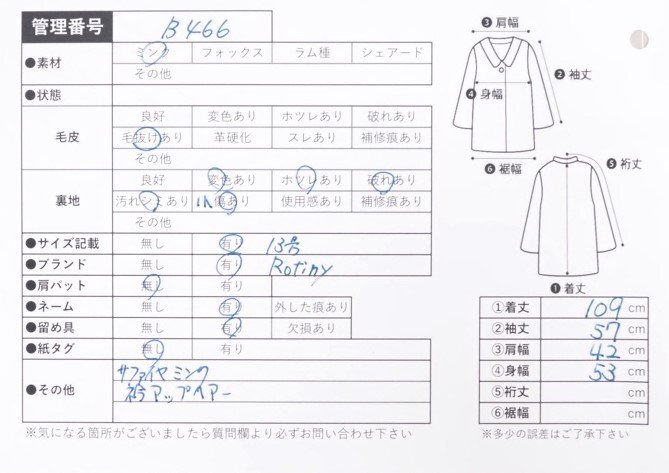 管理番号 B466
●素材 ミンク フォックス ラム種 シェアード
その他
●状態
毛皮 良好 変色あり ホツレあり 破れあり
毛抜けあり 革硬化 スレあり 補修痕あり
その他
裏地 良好 変色あり ホツレあり 破れあり
汚れシミあり 小傷あり 使用感あり 補修痕あり
その他
●サイズ記載 無し 有り 13号
●ブランド 無し 有り Rotiny
●肩パット 無し 有り
●ネーム 無し 有り 外した痕あり
●留め具 無し 有り 欠損あり
●紙タグ 無し 有り
●その他 サファイヤミンク
衿アップヘアー
※気になる箇所がございましたら質問欄より必ずお問い合わせ下さい
❸肩幅
❷袖丈
❹身幅
❻裾幅
❺裄丈
❶着丈
①着丈 109 cm
②袖丈 57 cm
③肩幅 42 cm
④身幅 53 cm
⑤裄丈 cm
⑥裾幅 cm
※多少の誤差はご了承下さい